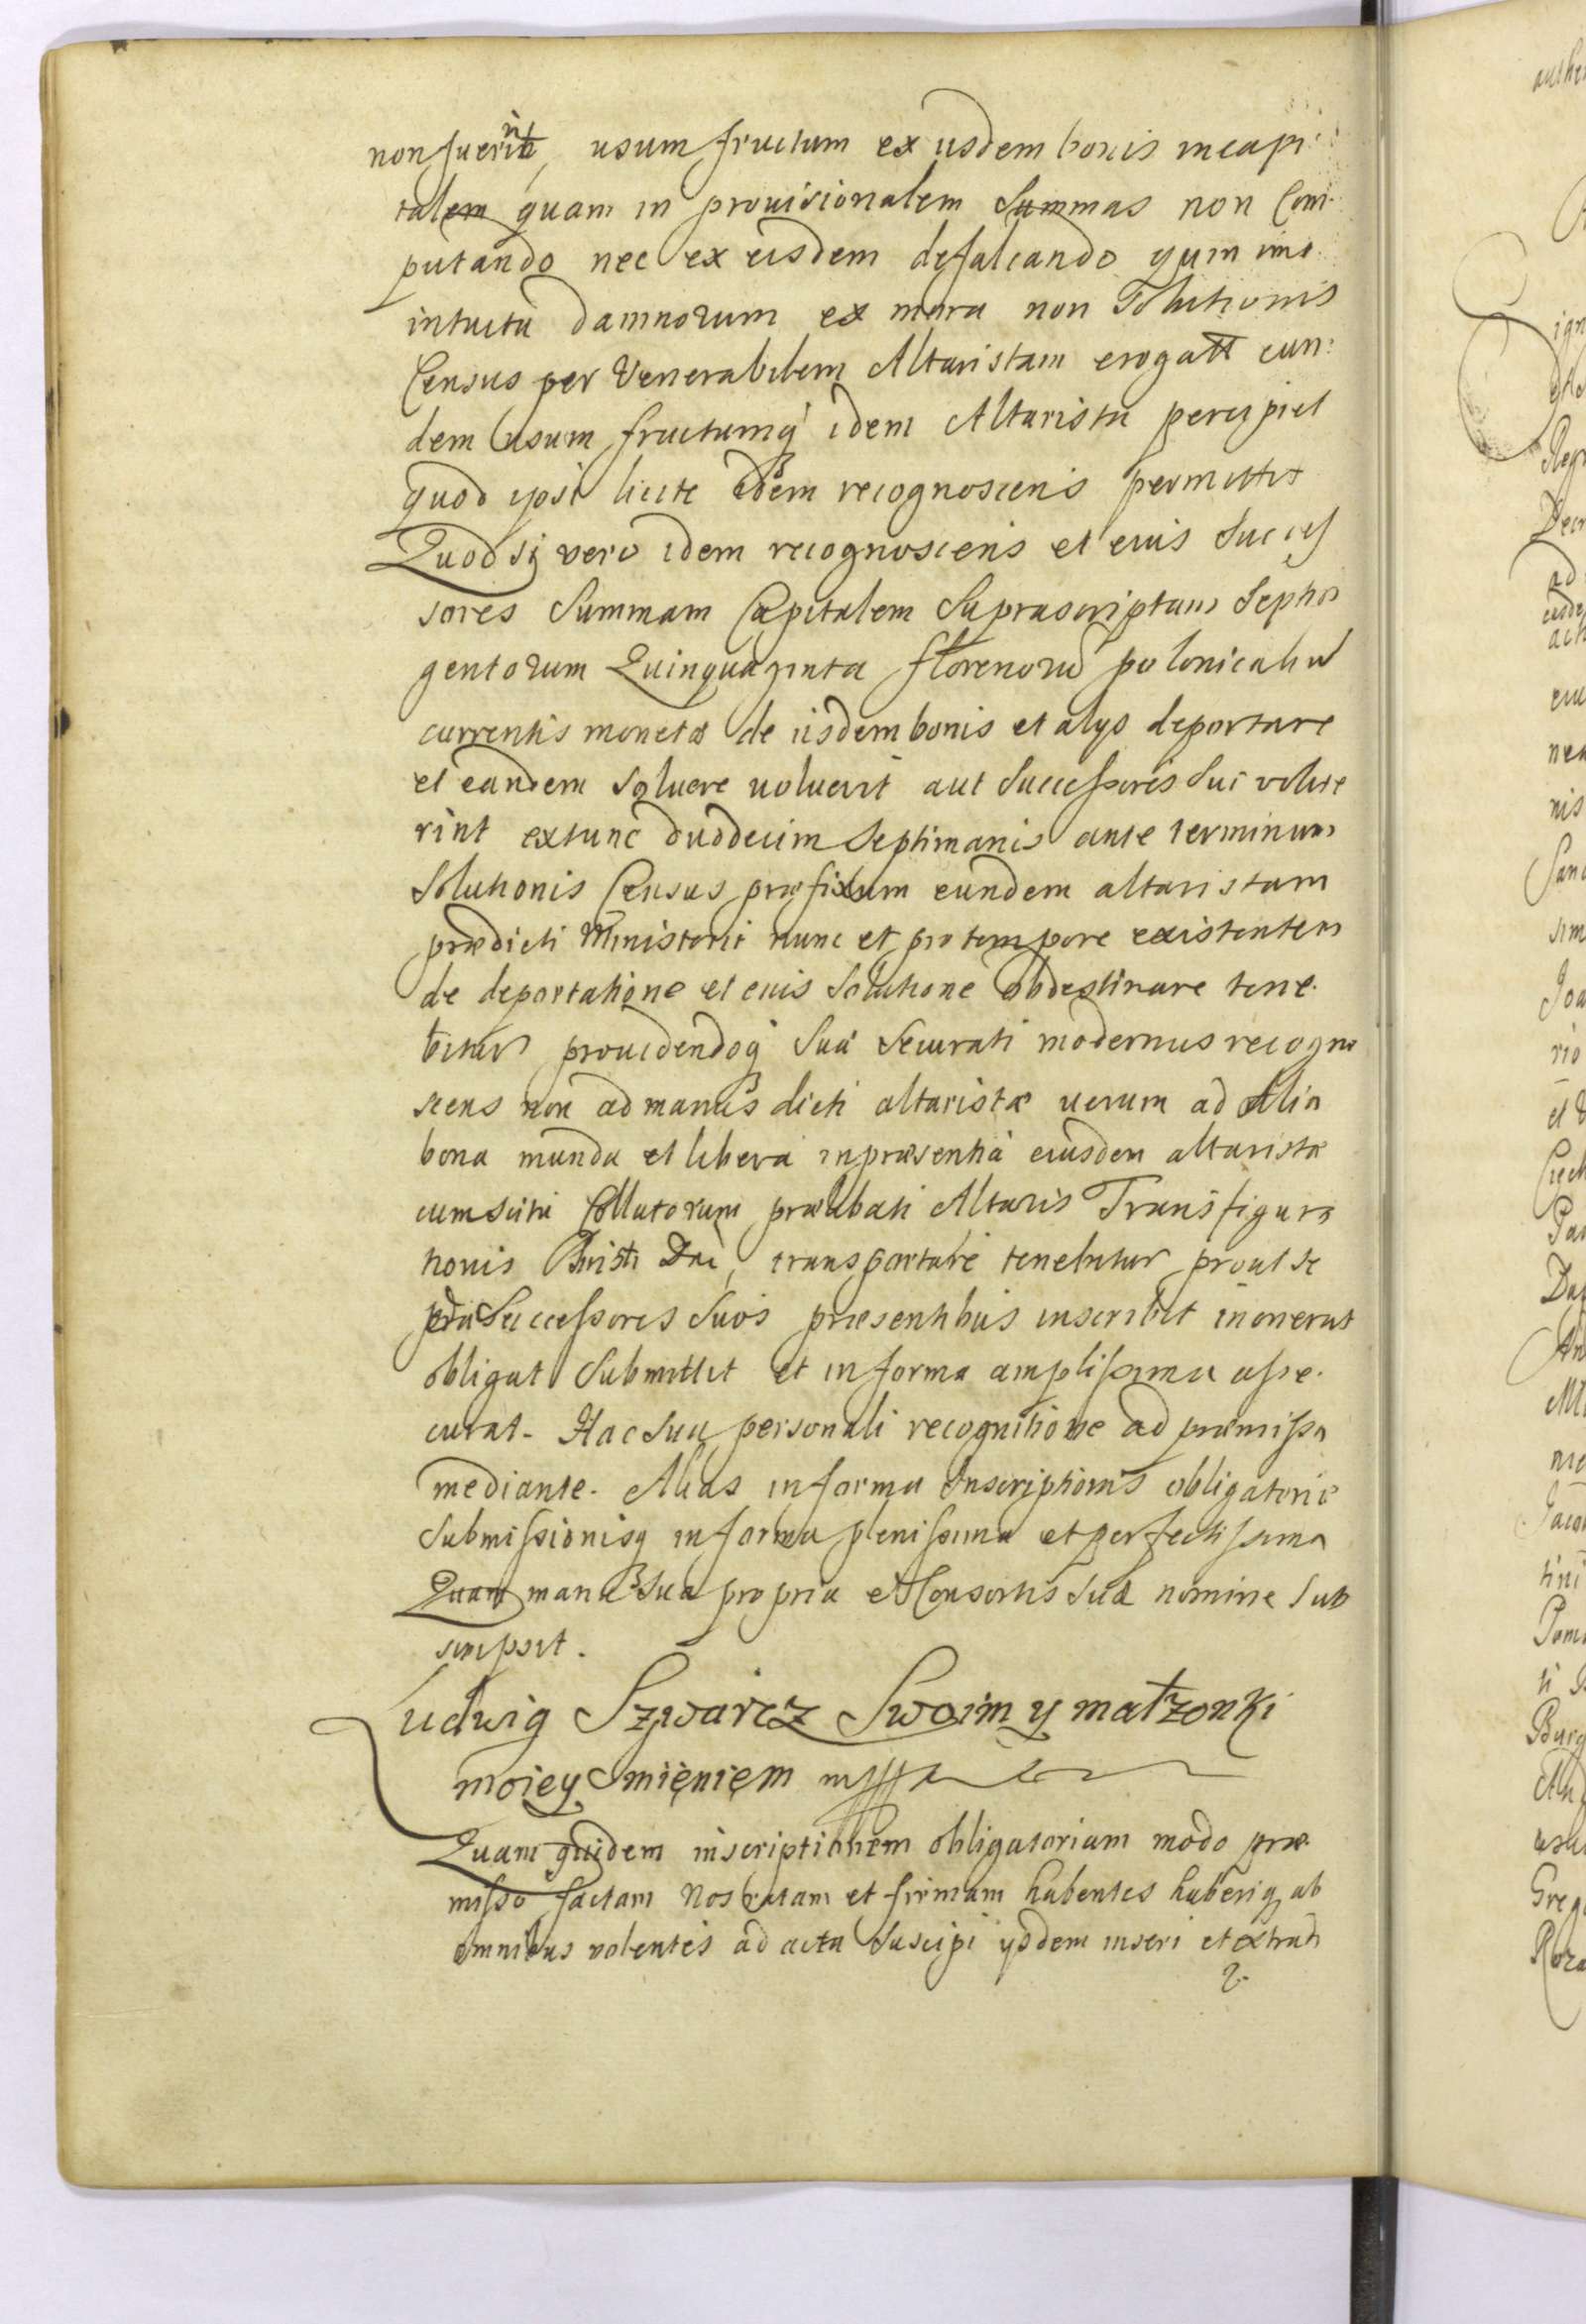 non fuerint, usum fructum ex iisdem bonis in capi
talem quam in provisionalem Summas non Com
putando nec ex eisdem defalcando quin imo
intuitu damnorum ex mora non Solutionis
Census per Venerabilem Altaristam erogatt eun:
dem usum fructumq idem Altarista percipiet
quod ipsi licite idem recognoscens permittit
Quod si vero idem recognoscens et eius Succes
sores Summam Capitalem Suprascriptam Septin
gentorum Quinquaginta florenorū polonicaliū
currentis monetæ de iisdem bonis et alys deportare
et eandem soluere uoluerit aut Successores Sui volue
rint extunc duodecim Septimanis ante terminum
Solutionis Census præfixum eundem altaristam
prædicti Ministerii nunc et pro tempore existentem
de deportatione et eius Solutione obdestinare tene
bitur prouidendoq Suæ Securati modernus recogno
scens non ad manus dicti altaristæ uerum ad Alia
bona munda et libera in præsentia eiusdem altaristæ
cum scitu Collatorum prælibati Altaris Transfigura
tionis Christi Dni, transportare tenebitur prout se
Successores Suos præsentibus inscribit inonerat
obligat Submittit et in forma amplissima asse
curat. Hac Sua personali recognitione ad præmissa
mediante. Alias in forma Inscriptionis obligatoriæ
Submissionisq in forma plenissima et perfectissima
Quam manu Sua propria et Consortis Suæ nomine Sub
scripsit.
Ludwig Szwarcz Swoim y małzonki
moiey Imięniem mppa
Quam quidem inscriptionem obligatoriam modo præ
misso factam Nos ratam et firmam habentes haberiq ab
omnibus volentes ad acta Suscipi ysdem inseri et extradi
2.